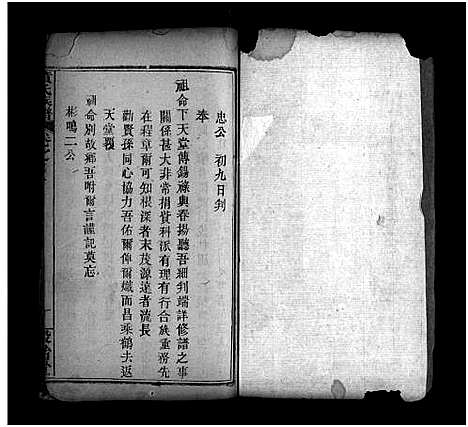 忠公 初九日判
奉
祖命下天堂傳錫祿與春揚聽吾細判端詳修譜之事
關係甚大非常捐貲科派有理有行合族重務先
在程章爾可知根深者末茂源遠者流長
勸賢孫同心協力吾佑爾俾爾熾而昌乘鶴去返
天堂覆
彬鳴二公
祖命別故鄉吾咐爾言謹記莫忘